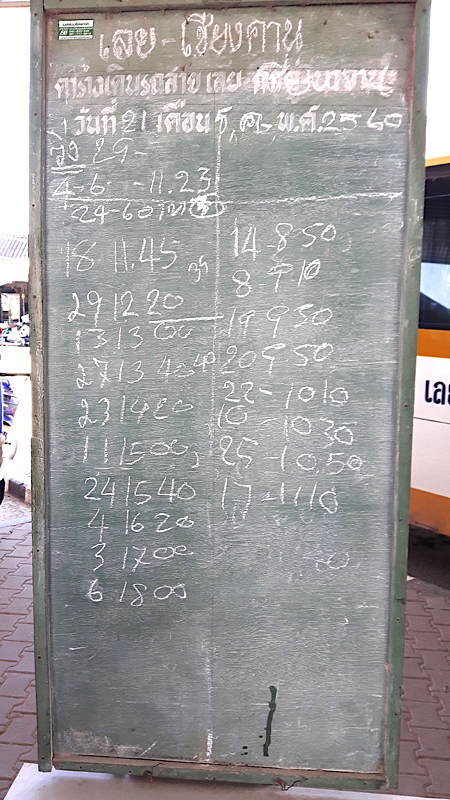 เลย - เชียงคาน
ตารางเดินรถสาย เลย
วันที่ 21 เดือน ธ.ค. พ.ศ. 2560
วิ่ง 29-
4-6- -11.23
24-60
18 11.45
29 12 20
13 13 00
27 13 40
23 14 20
11 15 00
24 15 40
4 16 20
3 17 00
6 18 00
14-8 50
8-9 10
19 9 30
20 9 50
22-10 10
10-10 30
25-10.50
17-11 10
เลย